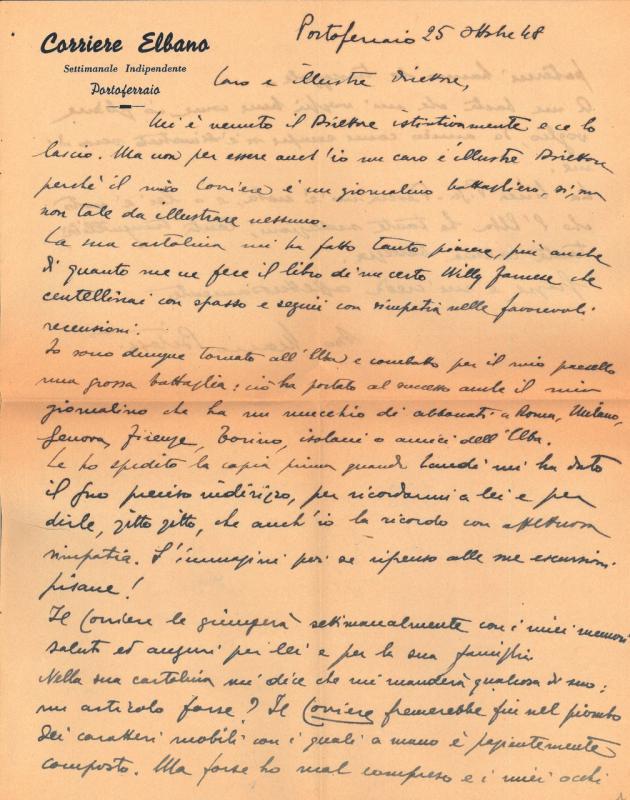 Corriere Elbano
Settimanale Indipendente
Portoferraio
Portoferraio 25 ottobre 48
Caro e illustre Direttore,
Mi è venuto il Direttore istintivamente e ce lo
lascio. Ma non per essere anch'io un caro e illustre Direttore
perchè il mio Corriere è un giornalino battagliero, si, ma
non tale da illustrare nessuno.
La sua cartolina mi ha fatto tanto piacere, più anche
di quanto me ne fece il libro di un certo Willy che
centellinai con spasso e seguii con simpatia nelle favorevoli
recensioni.
Io sono dunque tornato all'Elba e combatto per il mio paesello
una grossa battaglia: ciò ha portato al successo anche il mio
giornalino che ha un mucchio di abbonati a Roma, Milano,
Genova, Firenze, Torino, isolani o amici dell'Elba.
Le ho spedito la copia prima quando mi ha dato
il suo preciso indirizzo, per ricordarmi a lei e per
dirle, zitto zitto, che anch'io la ricordo con affettuosa
simpatia. S'immagini poi se ripenso alle sue escursioni
pisane!
Il Corriere le giungerà settimanalmente con i miei memori
saluti ed auguri per lei e per la sua famiglia.
Nella sua cartolina mi dice che mi manderà qualcosa di suo:
un articolo forse? Il Corriere fremerebbe fin nel piombo
dei caratteri mobili con i quali a mano è pazientemente
composto. Ma forse ho mal compreso e i miei occhi